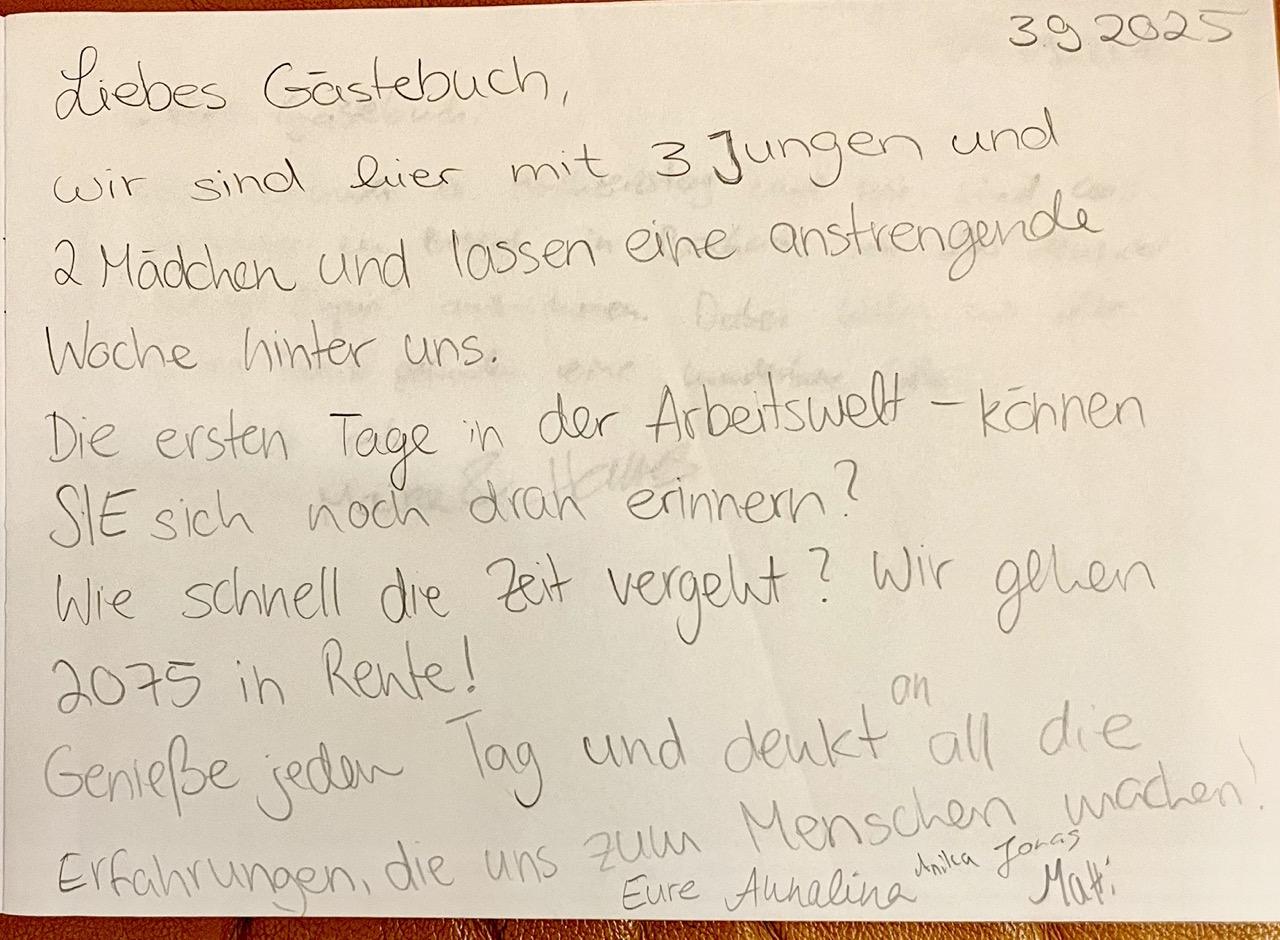 3.9.2025
Liebes Gästebuch,
wir sind hier mit 3 Jungen und
2 Mädchen und lassen eine anstrengende
Woche hinter uns.
Die ersten Tage in der Arbeitswelt – können
SIE sich noch dran erinnern?
Wie schnell die Zeit vergeht? Wir gehen
2075 in Rente!
Genieße jeden Tag und denkt an all die
Erfahrungen, die uns zum Menschen machen!
Eure Annalina Anika Jonas Matti